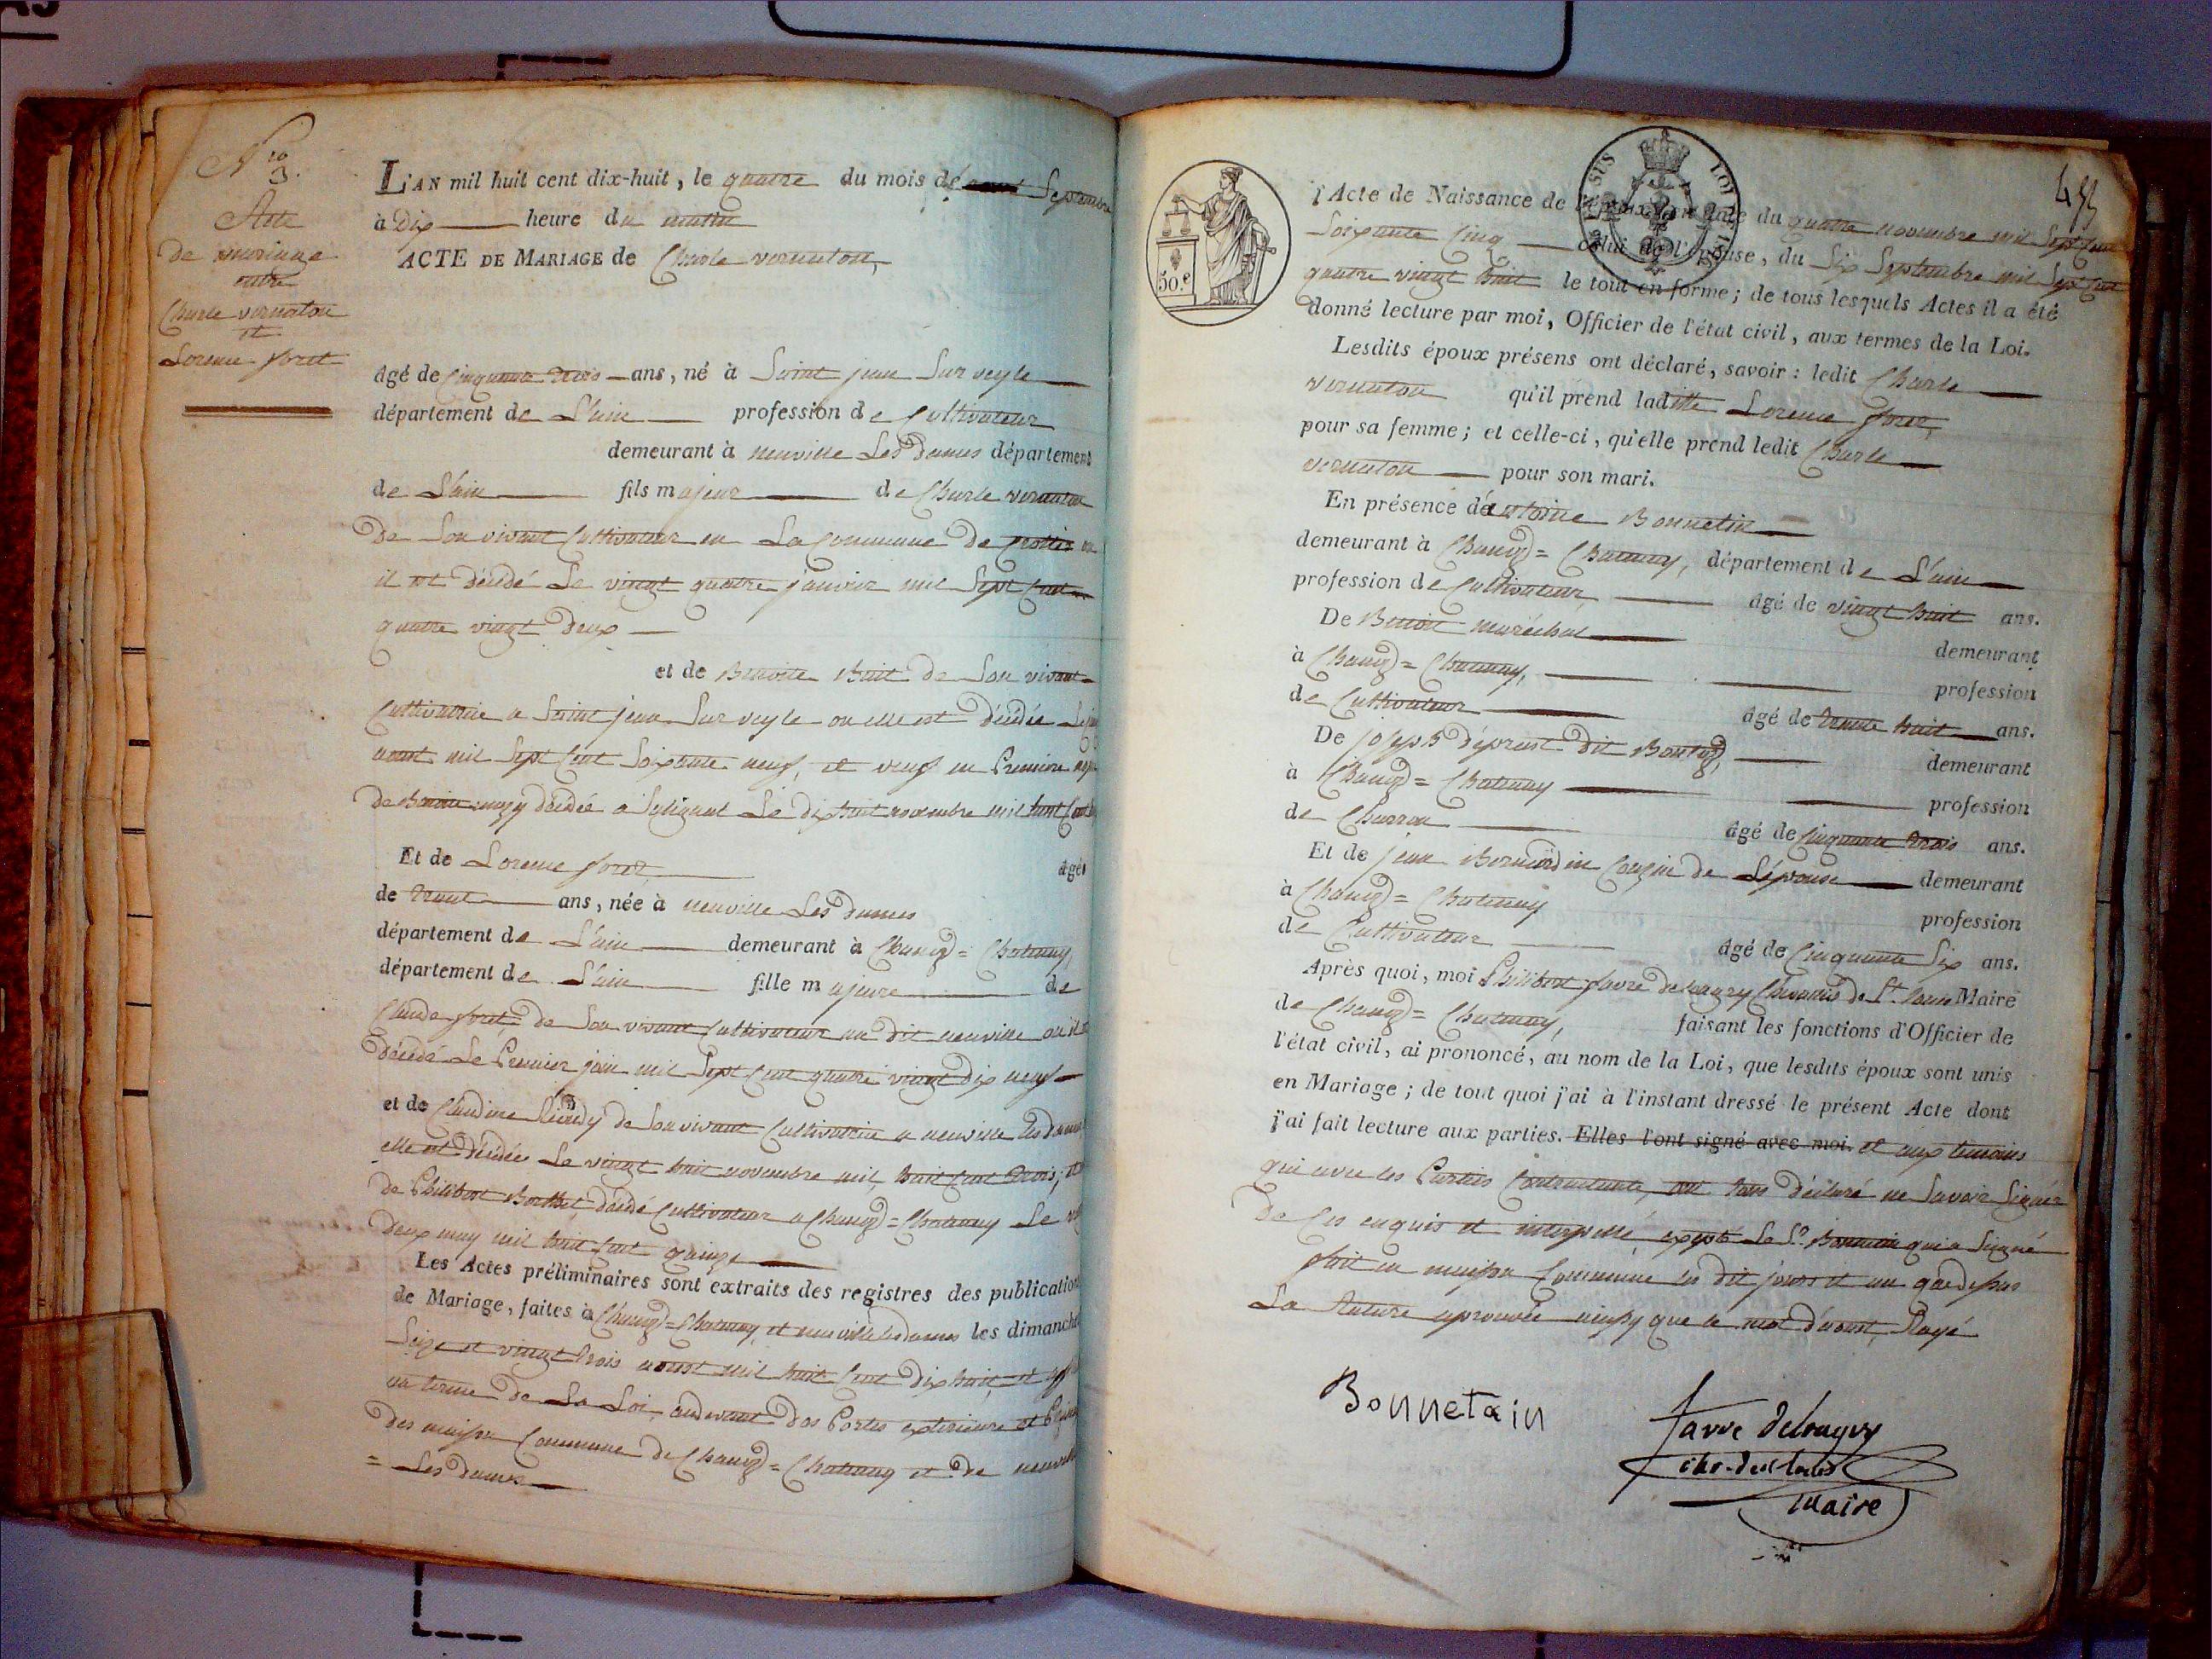 N.ro 3.
Acte
de mariage
entre
Charle vernaton
et
Lorence foret
L'AN mil huit cent dix-huit, le quatre du mois de aout Septembre
à Dix heure du matin
ACTE DE MARIAGE de Charle vernaton,
âgé de Cinquante trois ans, né à Saint jean Sur veyle
département de L'ain profession de Cultivateur
demeurant à neuville Les Dames département
de L'ain fils majeur de Charle vernaton
De Son vivant Cultivateur en La Commune de
il est décédé Le vingt quatre janvier mil Sept Cent
quatre vingt Deux
et de Benoite De Son vivant
Cultivatrice a Saint jean Sur veyle ou elle est décédée Le
aout mil Sept Cent Soixante neuf, et veuf en Premiere
De décédée a Le dix huit novembre mil huit Cent
Et de Lorence foret âgée
de trente ans, née à neuville Les Dames
département de L'ain demeurant à Chanoz=Chatenay,
département de L'ain fille majeure de
Claude foret de Son vivant Cultivateur au dit neuville ou il est
décédé Le Premier juin mil Sept Cent quatre vingt Dix neuf
et de Claudine De Son vivant Cultivatrice a neuville les Dames
elle est décédée Le vingt huit novembre mil huit Cent trois,
de Philibert décédé Cultivateur a Chanoz=Chatenay Le
Deux may mil huit Cent quinze
Les Actes préliminaires sont extraits des registres des publications
de Mariage, faites à Chanoz=Chatenay, et neuville les Dames les dimanches
Seize et vingt trois aoust mil huit Cent Dix huit, et
au terme De La Loi, audevant Des Portes exterieure et
Des maison Commune De Chanoz=Chatenay et De neuville
= Les Dames
50.c
l'Acte de Naissance de du quatre novembre mil Sept Cent
Soixante Cinq celui de l'épouse, du Six Septembre mil Sept Cent
quatre vingt huit le tout en forme; de tous lesquels Actes il a été
donné lecture par moi, Officier de l'état civil, aux termes de la Loi.
Lesdits époux présens ont déclaré, savoir: ledit Charle
vernaton qu'il prend laditte Lorence foret,
pour sa femme; et celle-ci, qu'elle prend ledit Charle
vernaton pour son mari.
En présence d'antoine Bonnetin
demeurant à Chanoz=Chatenay, département de L'ain
profession de Cultivateur, âgé de vingt huit ans.
De Benoit maréchal demeurant
à Chanoz=Chatenay, profession
de Cultivateur âgé de trente huit ans.
De joseph dit demeurant
à Chanoz=Chatenay profession
de Charron âgé de Cinquante trois ans.
Et de jean Bernardin Cousin de L'épouse demeurant
à Chanoz=Chatenay profession
de Cultivateur âgé de Cinquante Six ans.
Après quoi, moi Philibert favre Chevallier de St. Louis Maire
de Chanoz=Chatenay, faisant les fonctions d'Officier de
l'état civil, ai prononcé, au nom de la Loi, que lesdits époux sont unis
en Mariage; de tout quoi j'ai à l'instant dressé le présent Acte dont
j'ai fait lecture aux parties. Elles l'ont signé avec moi. et aux temoins
qui avec les Parties Contractante, ont tous déclaré ne Savoir Signer
De Ces enquis et interpellé, exepté Le Sr. Bonnetin qui a Signé
fait en maison Commune les dit jours et an que dessus
La rature aprouvée ainsy que le mot d'aoust, Rayé
Bonnetain
favre
Maire